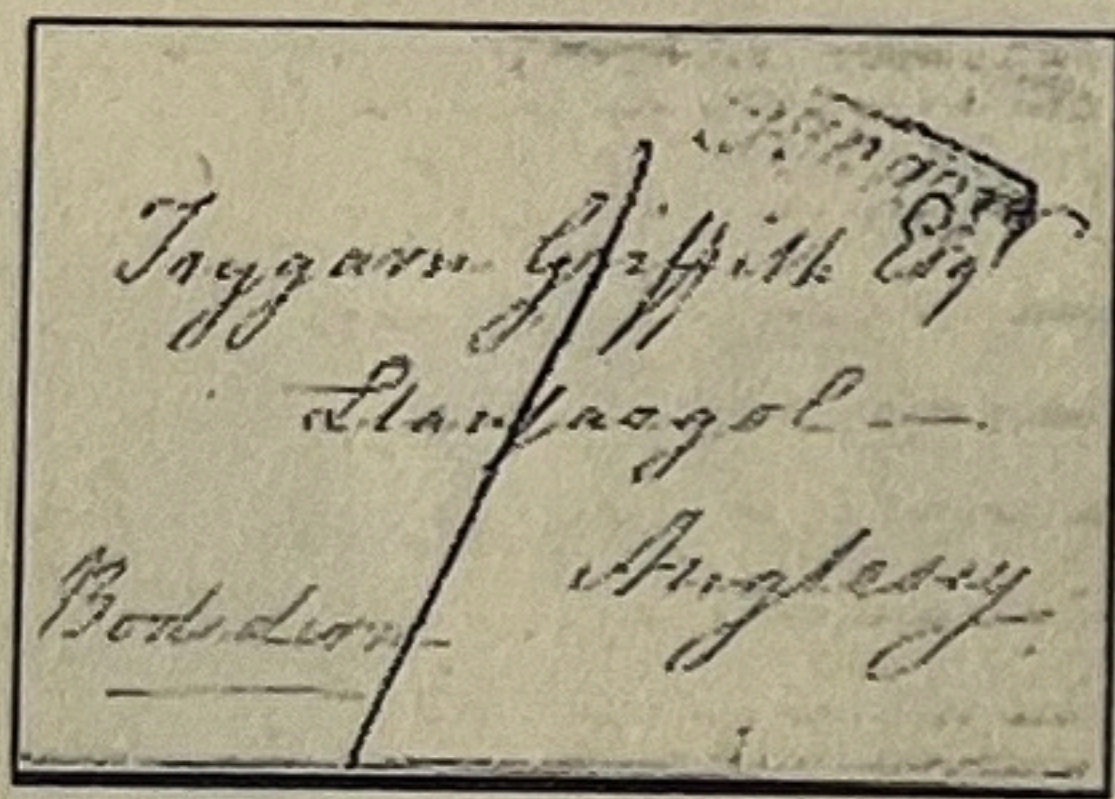 Trygarn Griffith Esq
Llanfaegol —.
Anglesey
Bodedern